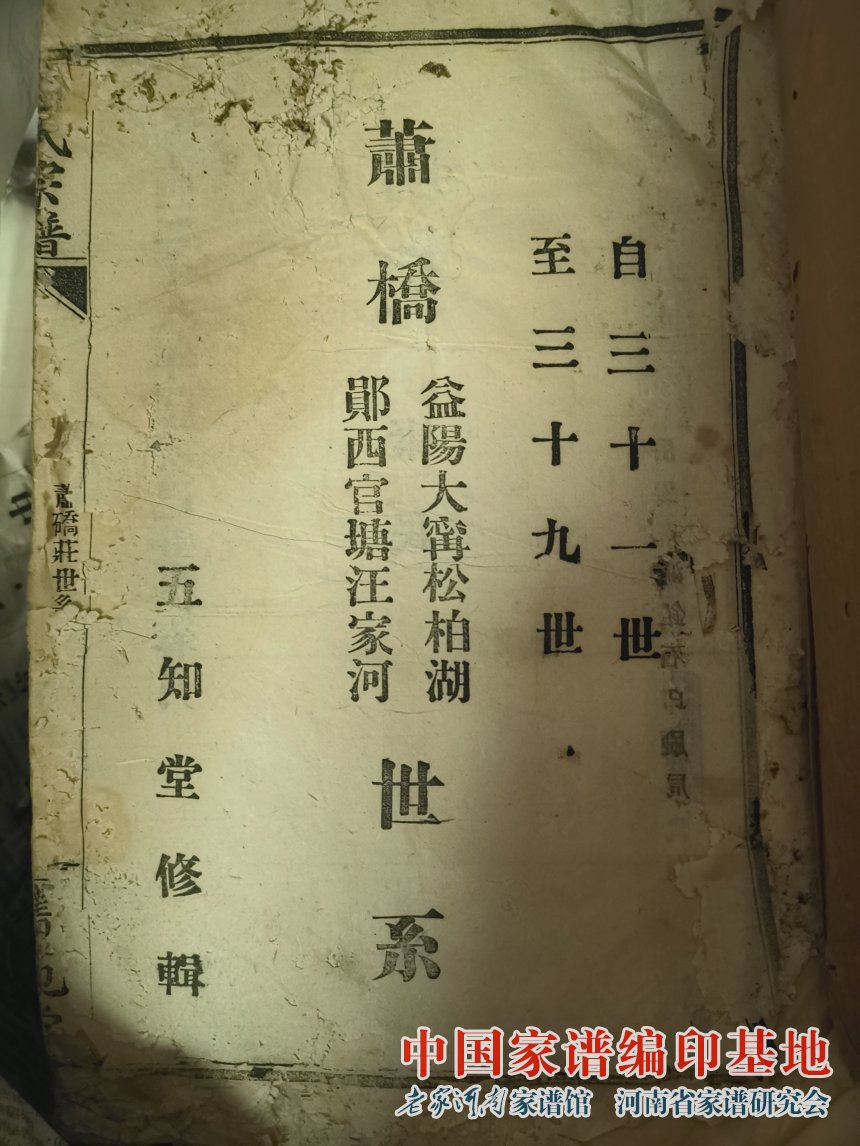 自三十一世
至三十九世
蕭橋
益陽大寗松柏湖
鄖西官塘汪家河
世系
五知堂修輯
氏宗譜
橋莊世系
中国家谱编印基地
老家河南家谱馆 河南省家谱研究会